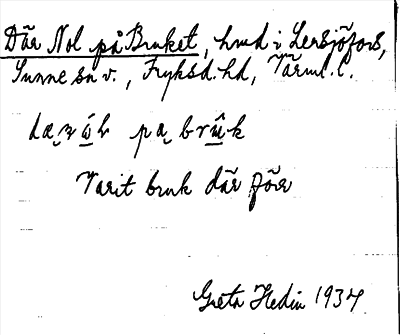 Där Nol på Bruket, hmd i Lersjöfors,
Sunne sn v., Fryksd. hd, Värml. l.
dæ̞ no᷇l pa̞ brʉ᷇k
Varit bruk där förr
Greta Hedin 1934